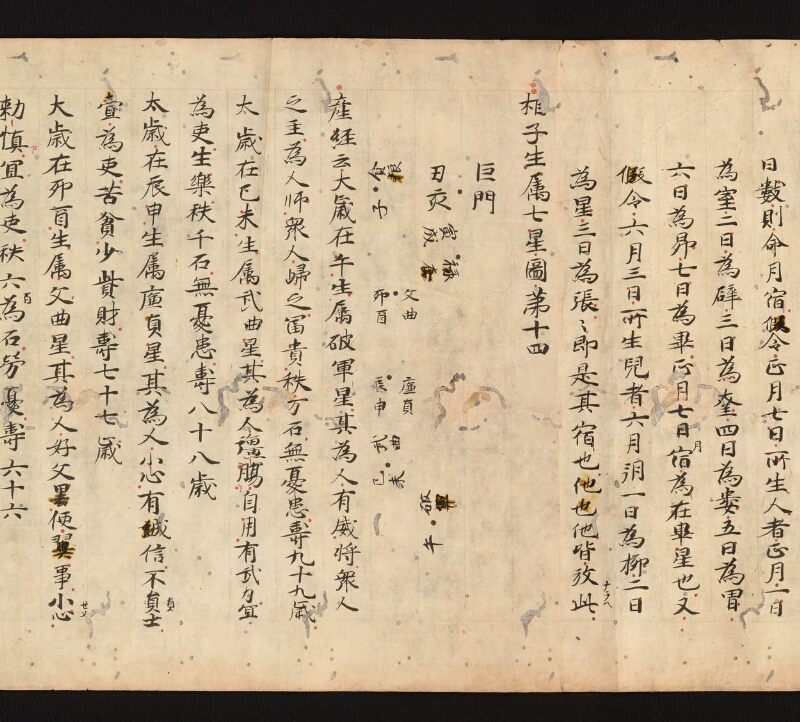 日數則命月宿假令正月七日所生人者正月一日
為室二日為辟三日為奎四日為婁五日為胃
六日為昴七日為畢正月七日月宿為在畢星也又
假令六月三日所生兒者六月朔一日為柳二日
為星三日為張〻即是其宿也他也他皆放此
相子生属七星圖第十四
巨門
丑亥
寅戌 禄存
文曲
卯酉
廉貞
辰申
武曲
巳未
破軍
午
貪狼
子
産経云大歳在午生属破軍星其為人有威将衆人
之主為人師衆人歸之冨貴秩万石無憂患壽九十九歳
太歳在巳未生属武曲星其為人強腸自用有武力宜
為吏生樂秩千石無憂患壽八十八歳
太歳在辰申生属廉貞星其為人小心有誠信不貞士
宜為吏苦貧少貲財壽七十七歳
大歳在卯酉生属文曲星其為人好父使事小心
勑慎宜為吏秩六百石勞憂壽六十六